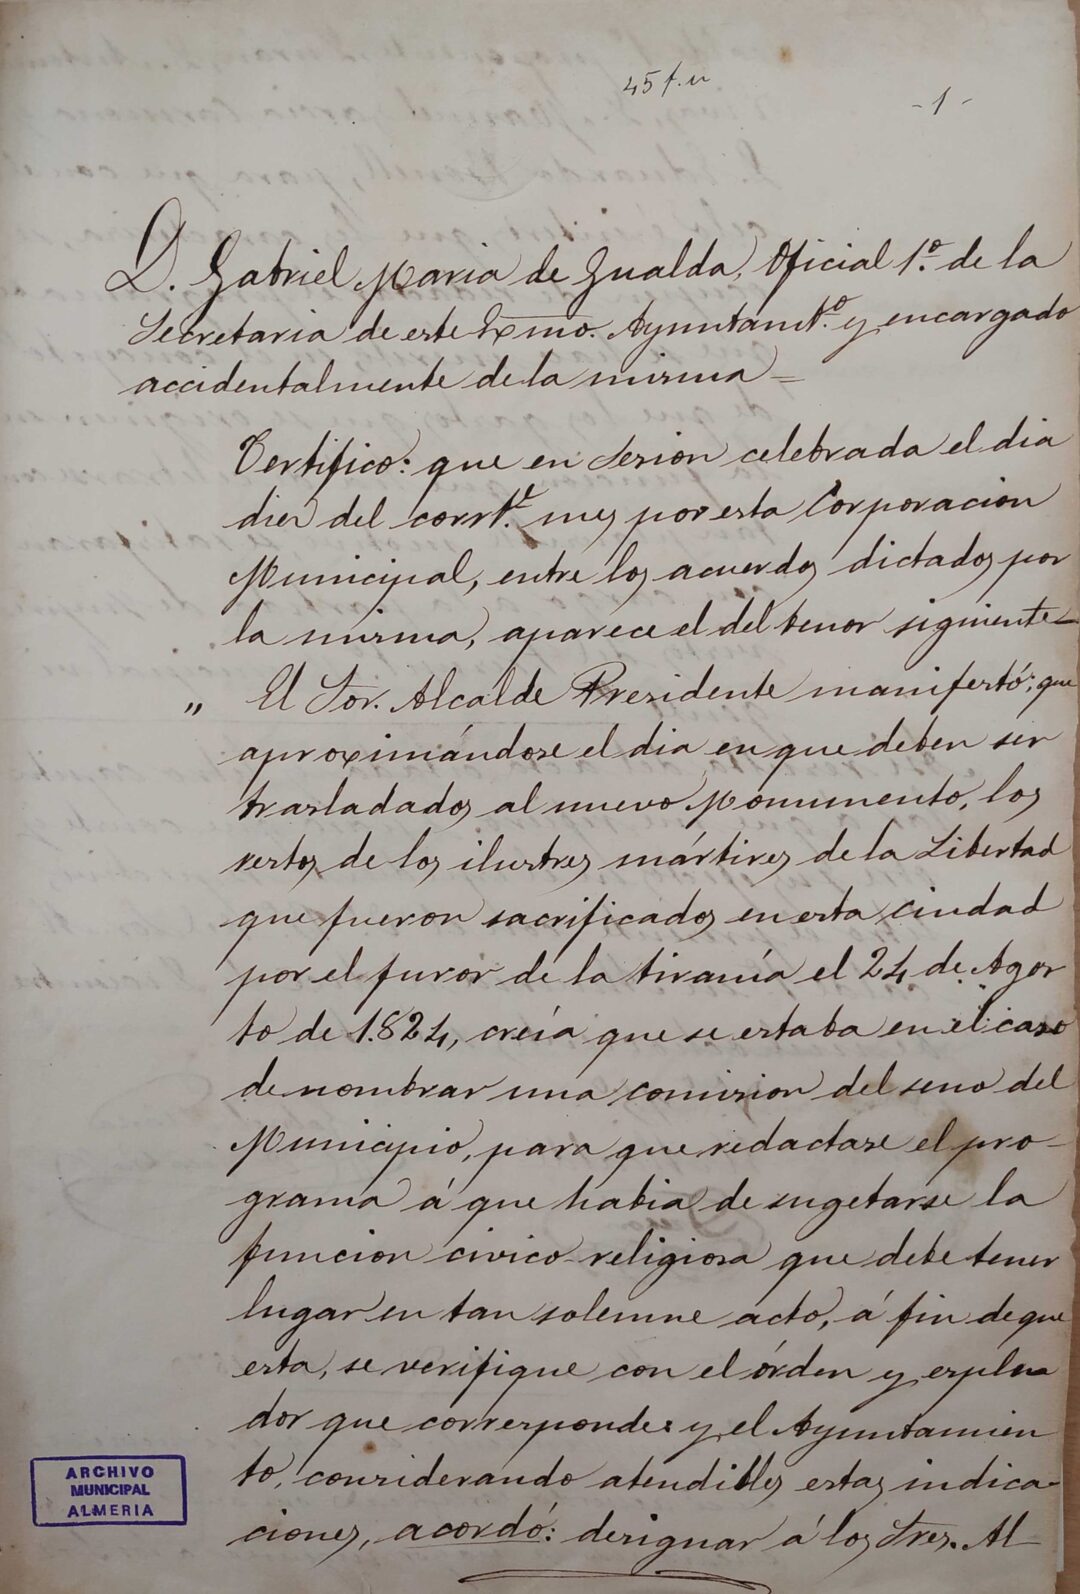 45 f. u
- 1 -
D. Gabriel Maria de Gualda, Oficial 1.º de la
Secretaria de este Exmo. Ayuntamt.º y encargado
accidentalmente de la misma =
Certifico: que en sesion celebrada el dia
diez del corrt.e mes por esta Corporacion
Municipal, entre los acuerdos dictados por
la misma, aparece el del tenor siguiente =
" El Sor. Alcalde Presidente manifestó: que
aproximándose el dia en que deben ser
trasladados al nuevo Monumento, los
restos de los ilustres mártires de la Libertad
que fueron sacrificados en esta ciudad
por el furor de la tiranía el 24 de Agos
to de 1.824, creía que se estaba en el caso
de nombrar una comision del seno del
Municipio, para que redactase el pro-
grama á que habia de sugetarse la
funcion civico-religiosa que debe tener
lugar en tan solemne acto, á fin de que
esta, se verifique con el órden y esplen
dor que corresponde: y el Ayuntamien
to, considerando atendibles estas indica-
ciones, acordó: designar á los Sres. Al-
ARCHIVO
MUNICIPAL
ALMERIA